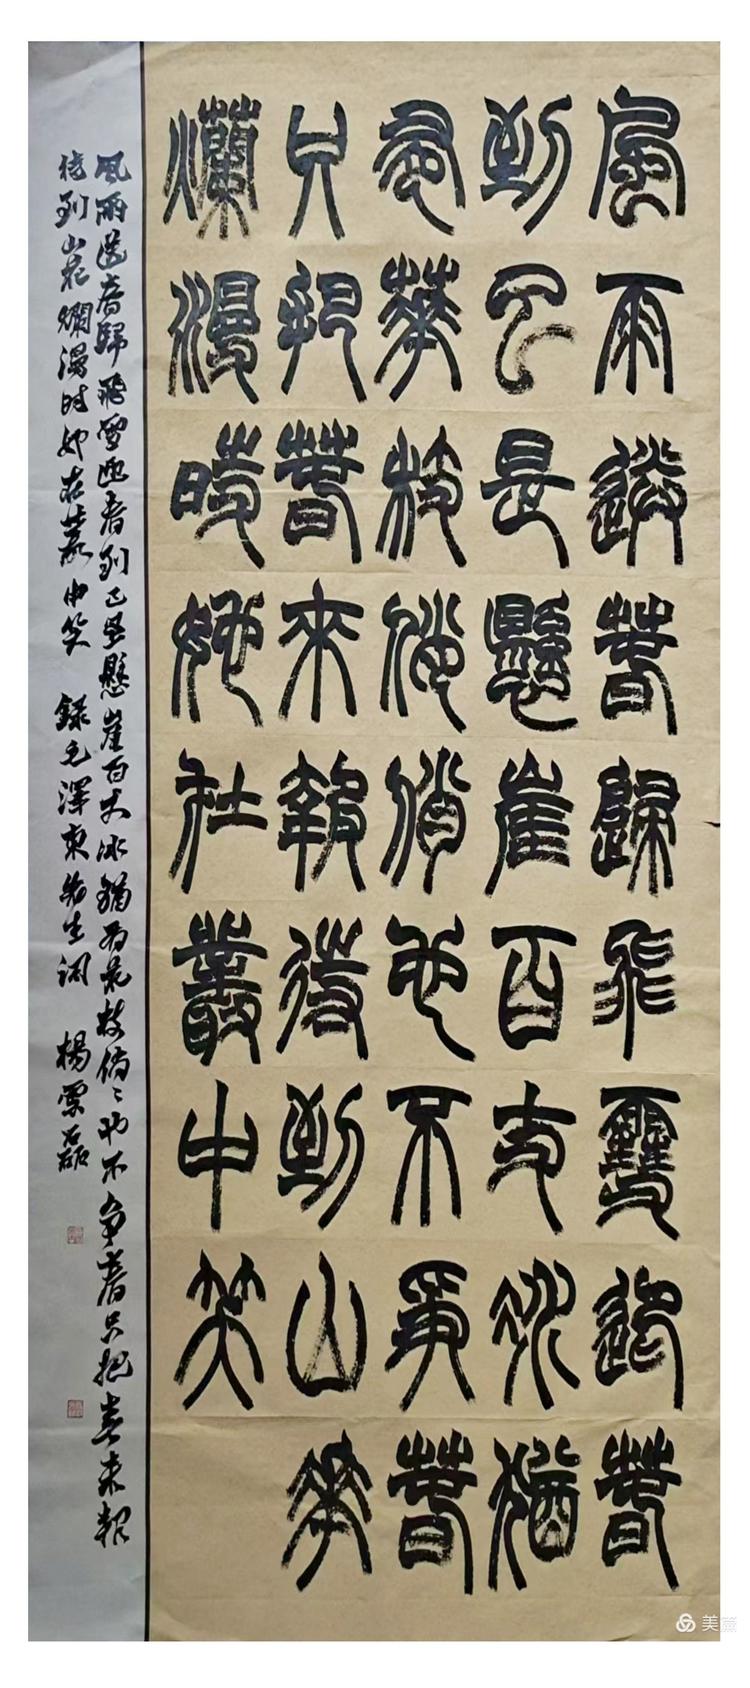 風雨送春歸飛雪迎春
到已是懸崖百丈冰猶
有華枝俏俏也不爭春
只把春來報待到山華
爛漫時她在叢中笑
風雨送春歸飛雪迎春到已是懸崖百丈冰猶有花枝俏〻也不爭春只把春來報
待到山花爛漫時她在叢中笑 錄毛澤東先生詞 楊雲磊
美篇